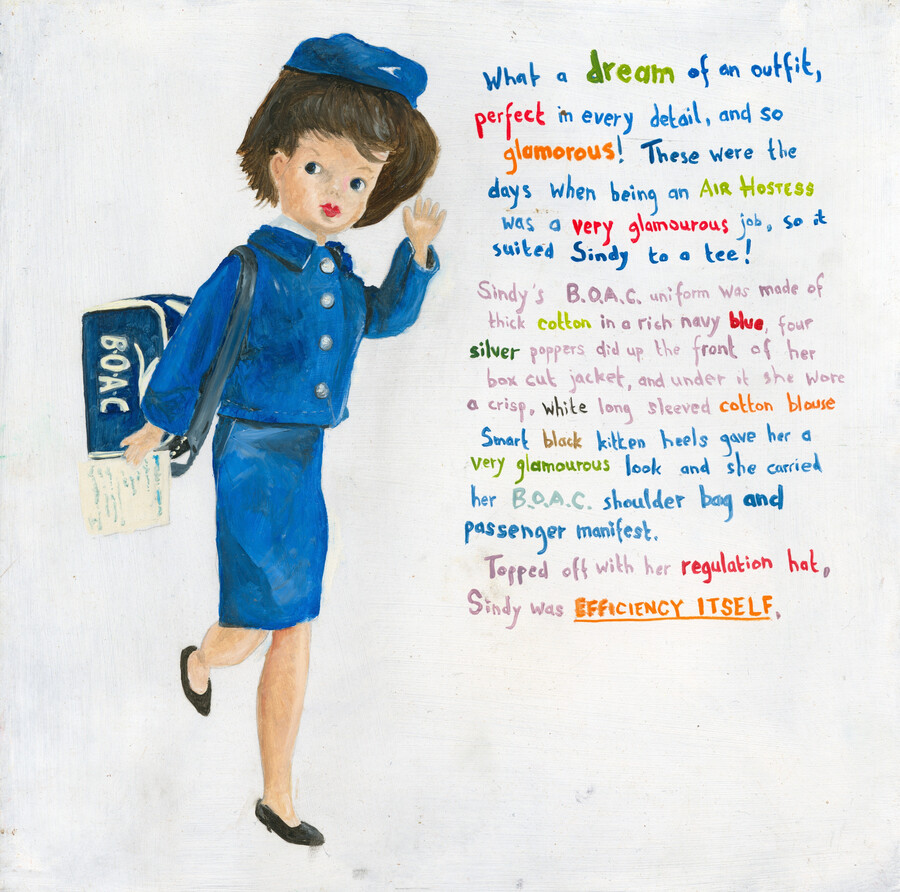 What a dream of an outfit,
perfect in every detail, and so
glamorous! These were the
days when being an AIR HOSTESS
was a very glamourous job, so it
suited Sindy to a tee!
Sindy's B.O.A.C. uniform was made of
thick cotton in a rich navy blue, four
silver poppers did up the front of her
box cut jacket, and under it she wore
a crisp, white long sleeved cotton blouse
Smart black kitten heels gave her a
very glamourous look and she carried
her B.O.A.C. shoulder bag and
passenger manifest.
Topped off with her regulation hat,
Sindy was EFFICIENCY ITSELF.
B·O·A·C